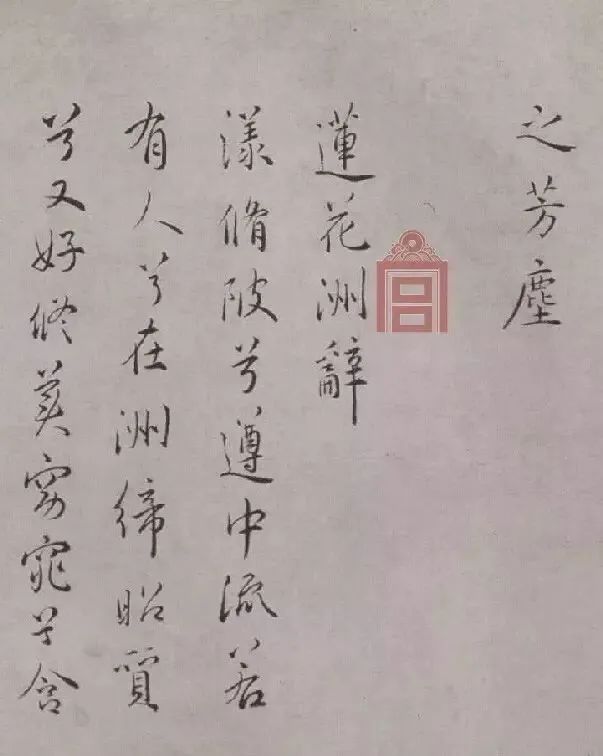 之芳塵
蓮花洲辭
漾脩陂兮遵中流若
有人兮在洲締昭質
兮又好修美窈窕兮含